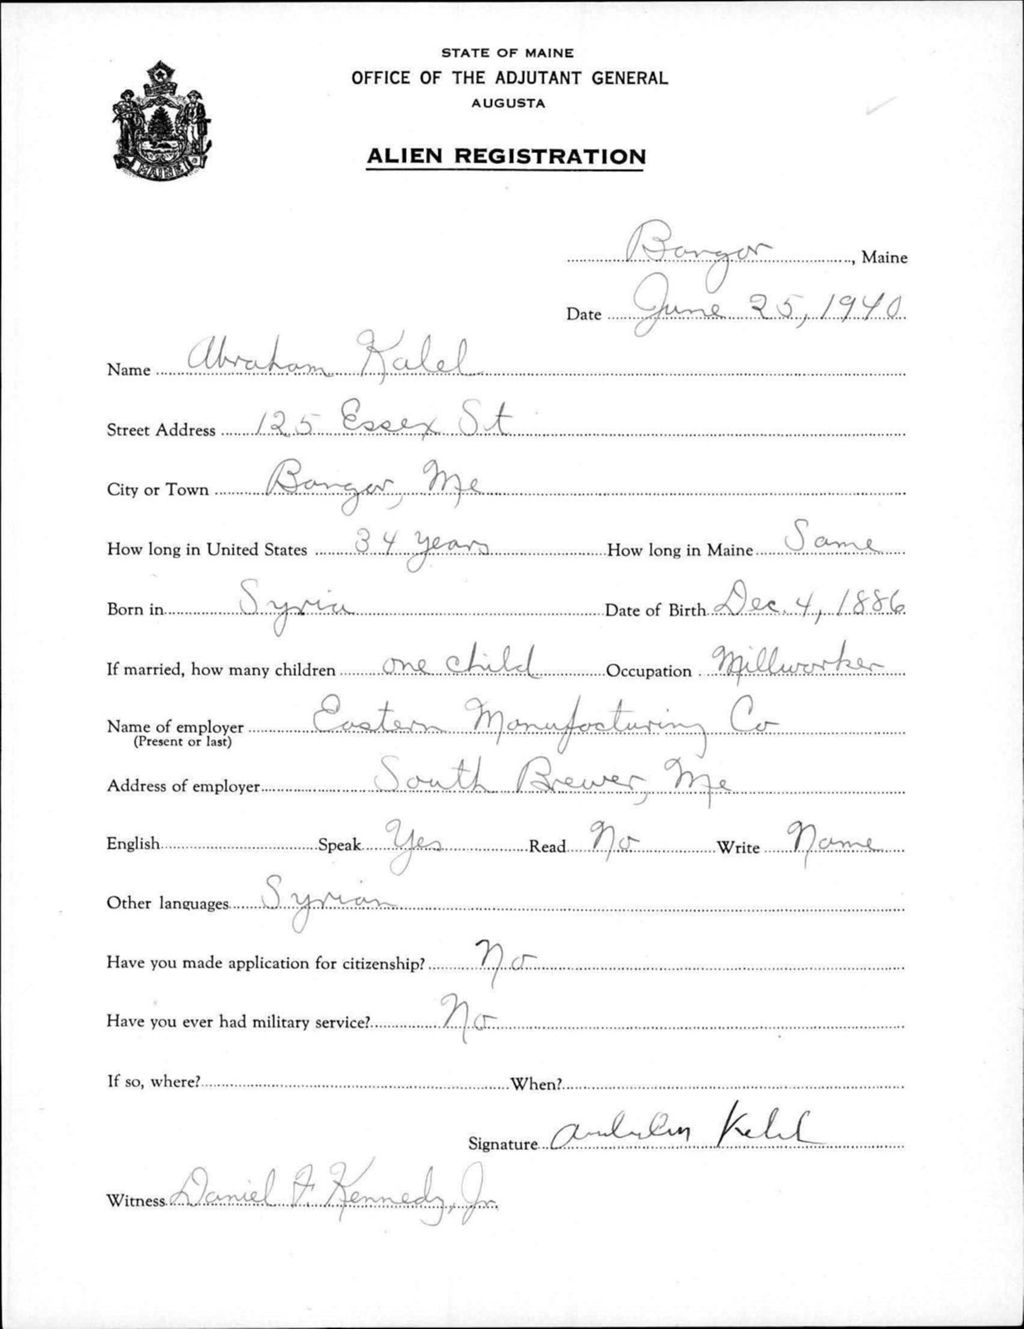 STATE OF MAINE
OFFICE OF THE ADJUTANT GENERAL
AUGUSTA
ALIEN REGISTRATION
MAINE
Bangor, Maine
Date June 25, 1940
Name Abraham Kalel
Street Address 125 Essex St
City or Town Bangor, Me
How long in United States 34 years How long in Maine Same
Born in Syria Date of Birth Dec. 4, 1886
If married, how many children one child Occupation Millworker
Name of employer Eastern Manufacturing Co
(Present or last)
Address of employer South Brewer, Me
English Speak Yes Read No Write Name
Other languages Syrian
Have you made application for citizenship? No
Have you ever had military service? No
If so, where? When?
Signature
Witness Daniel F. Kennedy, Jr.